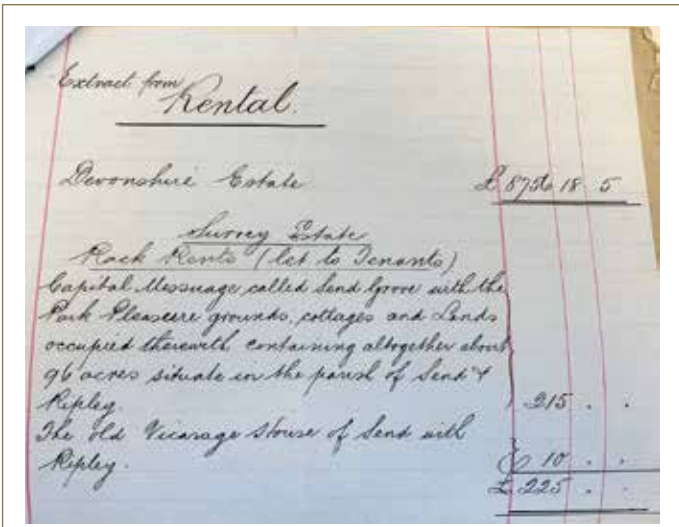 Extract from
Rental.
Devonshire Estate £ 875 18 5
Surrey Estate
Rack Rents (let to Tenants)
Capital Messuage, called Send Grove with the
Park Pleasure grounds, cottages and Lands
occupied therewith containing altogether about
96 acres situate in the parish of Send &
Ripley. 215 . .
The Old Vicarage House of Send with
Ripley. 10 . .
£ 225 . .